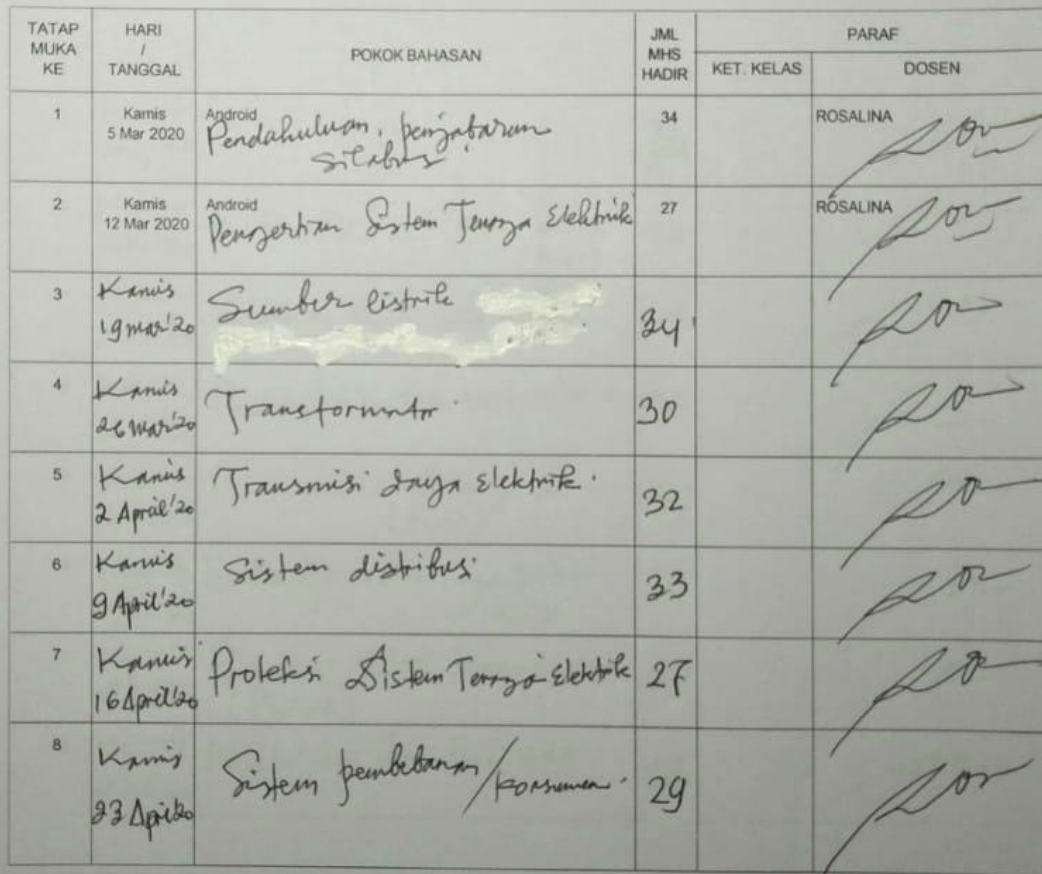 TATAP MUKA KE
HARI / TANGGAL
POKOK BAHASAN
JML MHS HADIR
PARAF
KET. KELAS
DOSEN
1
Kamis
5 Mar 2020
Android
Pendahuluan, penjabaran
silabus
34
ROSALINA
2
Kamis
12 Mar 2020
Android
Pengertian Sistem Tenaga Elektrik
27
ROSALINA
3
Kamis
19 mar'20
Sumber listrik
34
4
Kamis
26 mar'20
Transformator
30
5
Kamis
2 April'20
Transmisi daya elektrik.
32
6
Kamis
9 April'20
Sistem distribusi
33
7
Kamis
16 April'20
Proteksi Sistem Tenaga Elektrik
27
8
Kamis
23 April'20
Sistem pembebanan/konsumen.
29